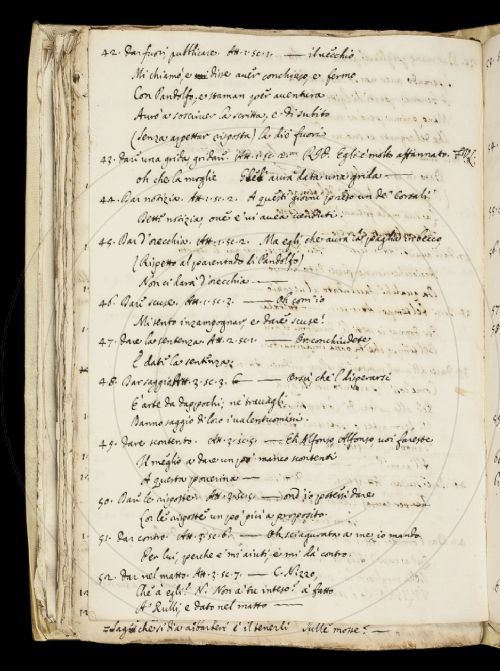 42. Dar fuori pubblicare. Att. 1. sc. 1. — il uecchio
Mi chiamò, e disse auer conchiuso, e fermo
Con Pandolfo, e staman per auentura
Aurò a soscriuer la scritta, e di subito
(Senza aspettar risposta) la diè fuori
43. Dare una grida, gridare. Att. 1. sc. Egli è molto affannato.
oh che la moglie aurà data una grida
44. Dar notizia. Att. 1. sc. 2. A questi giorni preso un de' Corsali
Dette notizia oue e' ui auea uenduti.
45. Dar d'orecchia. Att. 1. sc. 2. Ma egli che aurà la paglia in becco
(Rispetto al parentado di Pandolfo)
Non ci darà d'orecchia —
46. Dare scuse. Att. 1. sc. 3. — Oh com'io
Mi sento inzampognar, e dare scuse!
47. Dare la sentenza. Att. 2. sc. 1. — Or conchiudete
E date la sentenza:
48. Dar saggio Att. 3. sc. 3. 6 — Orsù che 'l disperarsi
È arte da dappochi; ne' trauagli
Danno saggio di loro i ualentuomini.
49. Dare scontento. Att. 3. sc. 5. — Eh Alfonso Alfonso uoi fareste
Il meglio a dare un po' manco scontenti
A questa pouerina —
50. Dare le risposte. Att. 3. sc. — ond' io potessi dare
Lor le risposte un po' più a proposito.
51. Dar contro. Att. 3. sc. 6. — Oh sciagurata a me, io mando
Per lui, perche e' mi aiuti, e mi dà contro.
52. Dar nel matto. Att. 3. sc. 7. — C. Nizzo,
Che à egli? Ni. Non a' tu inteso? à fatto
A' Rulli, e dato nel matto —
il tenerli Sulle mosse? —